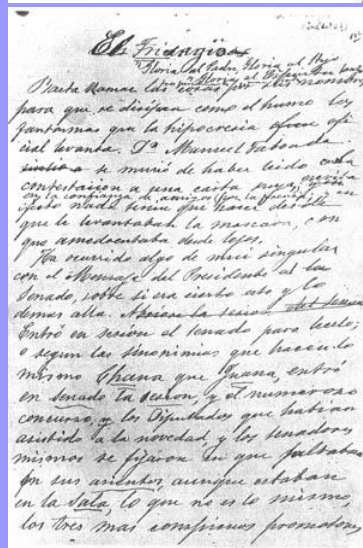 El Tridagio
"Gloria al Padre, Gloria al Hijo
Basta llamar las cosas por sus nombres
para que se disipen como el humo los
fantasmas que la hipocresia
cial levanta. Dn Manuel Taboada
se murió de haber leido
contestacion a una carta suya, escrita
en la confianza de amigos
efecto nada tenia que hacer desde
que le levantaban la mascara, con
que amedrentaba desde lejos.
Ha ocurrido algo de mui singular
con el Mensage del Presidente al
Senado, sobre si era cierto esto y lo
demas alla.
Entró en sesion el Senado para leerlo,
o segun las sinonimias que hacen lo
mismo Chana que Juana, entró
en Senado la sesion, y el numeroso
concurso, y los Diputados que habian
asistido a la novedad, y los senadores
mismos se fijaron en que faltaban
en sus asientos, aunque estaban
en la Sala, lo que no es lo mismo,
los tres mas conspicuos promotores